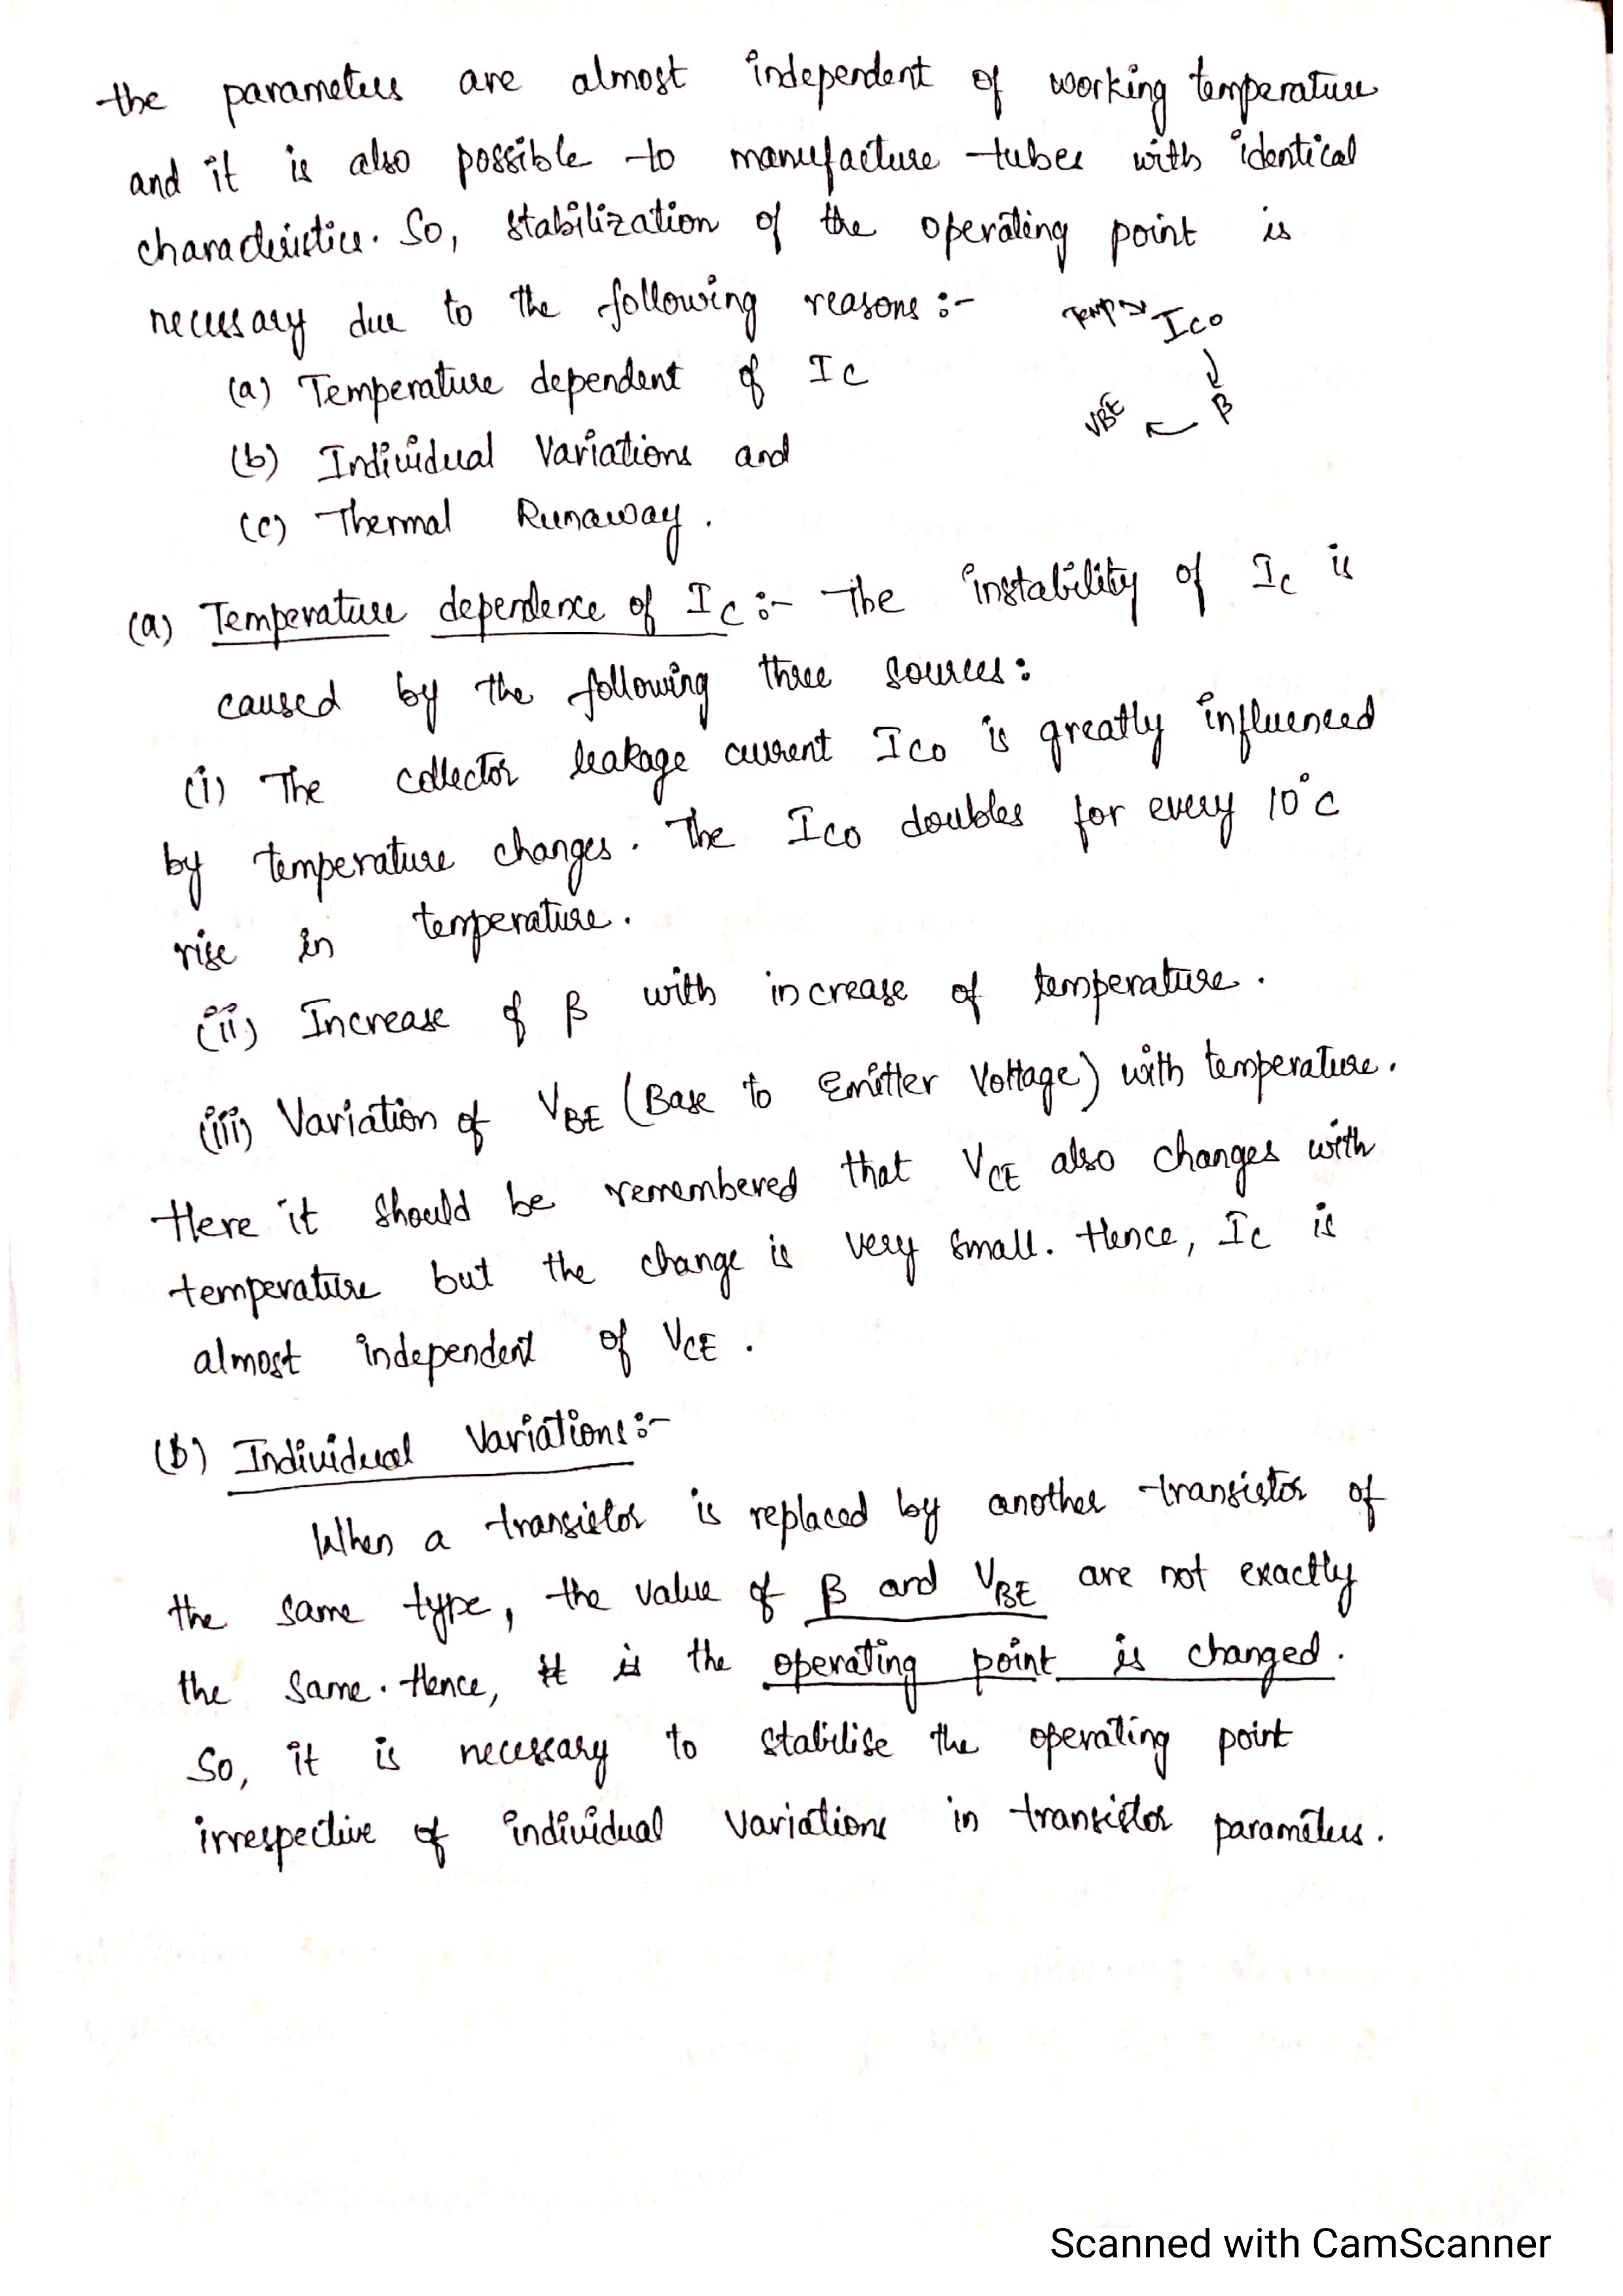 the parameters are almost independent of working temperature
and it is also possible to manufacture tubes with identical
characteristics. So, stabilization of the operating point is
necessary due to the following reasons :-
Temp → Ico
↓
VBE ← β
(a) Temperature dependent of IC
(b) Individual Variations and
(c) Thermal Runaway.
(a) Temperature dependence of IC :- The instability of Ic is
caused by the following three sources:
(i) The collector leakage current ICO is greatly influenced
by temperature changes. The ICO doubles for every 10°C
rise in temperature.
(ii) Increase of β with increase of temperature.
(iii) Variation of VBE (Base to Emitter Voltage) with temperature.
Here it should be remembered that VCE also changes with
temperature but the change is very small. Hence, Ic is
almost independent of VCE.
(b) Individual Variations :-
When a transistor is replaced by another transistor of
the same type, the value of β and VBE are not exactly
the same. Hence, it is the operating point is changed.
So, it is necessary to stabilise the operating point
irrespective of individual variations in transistor parameters.
Scanned with CamScanner